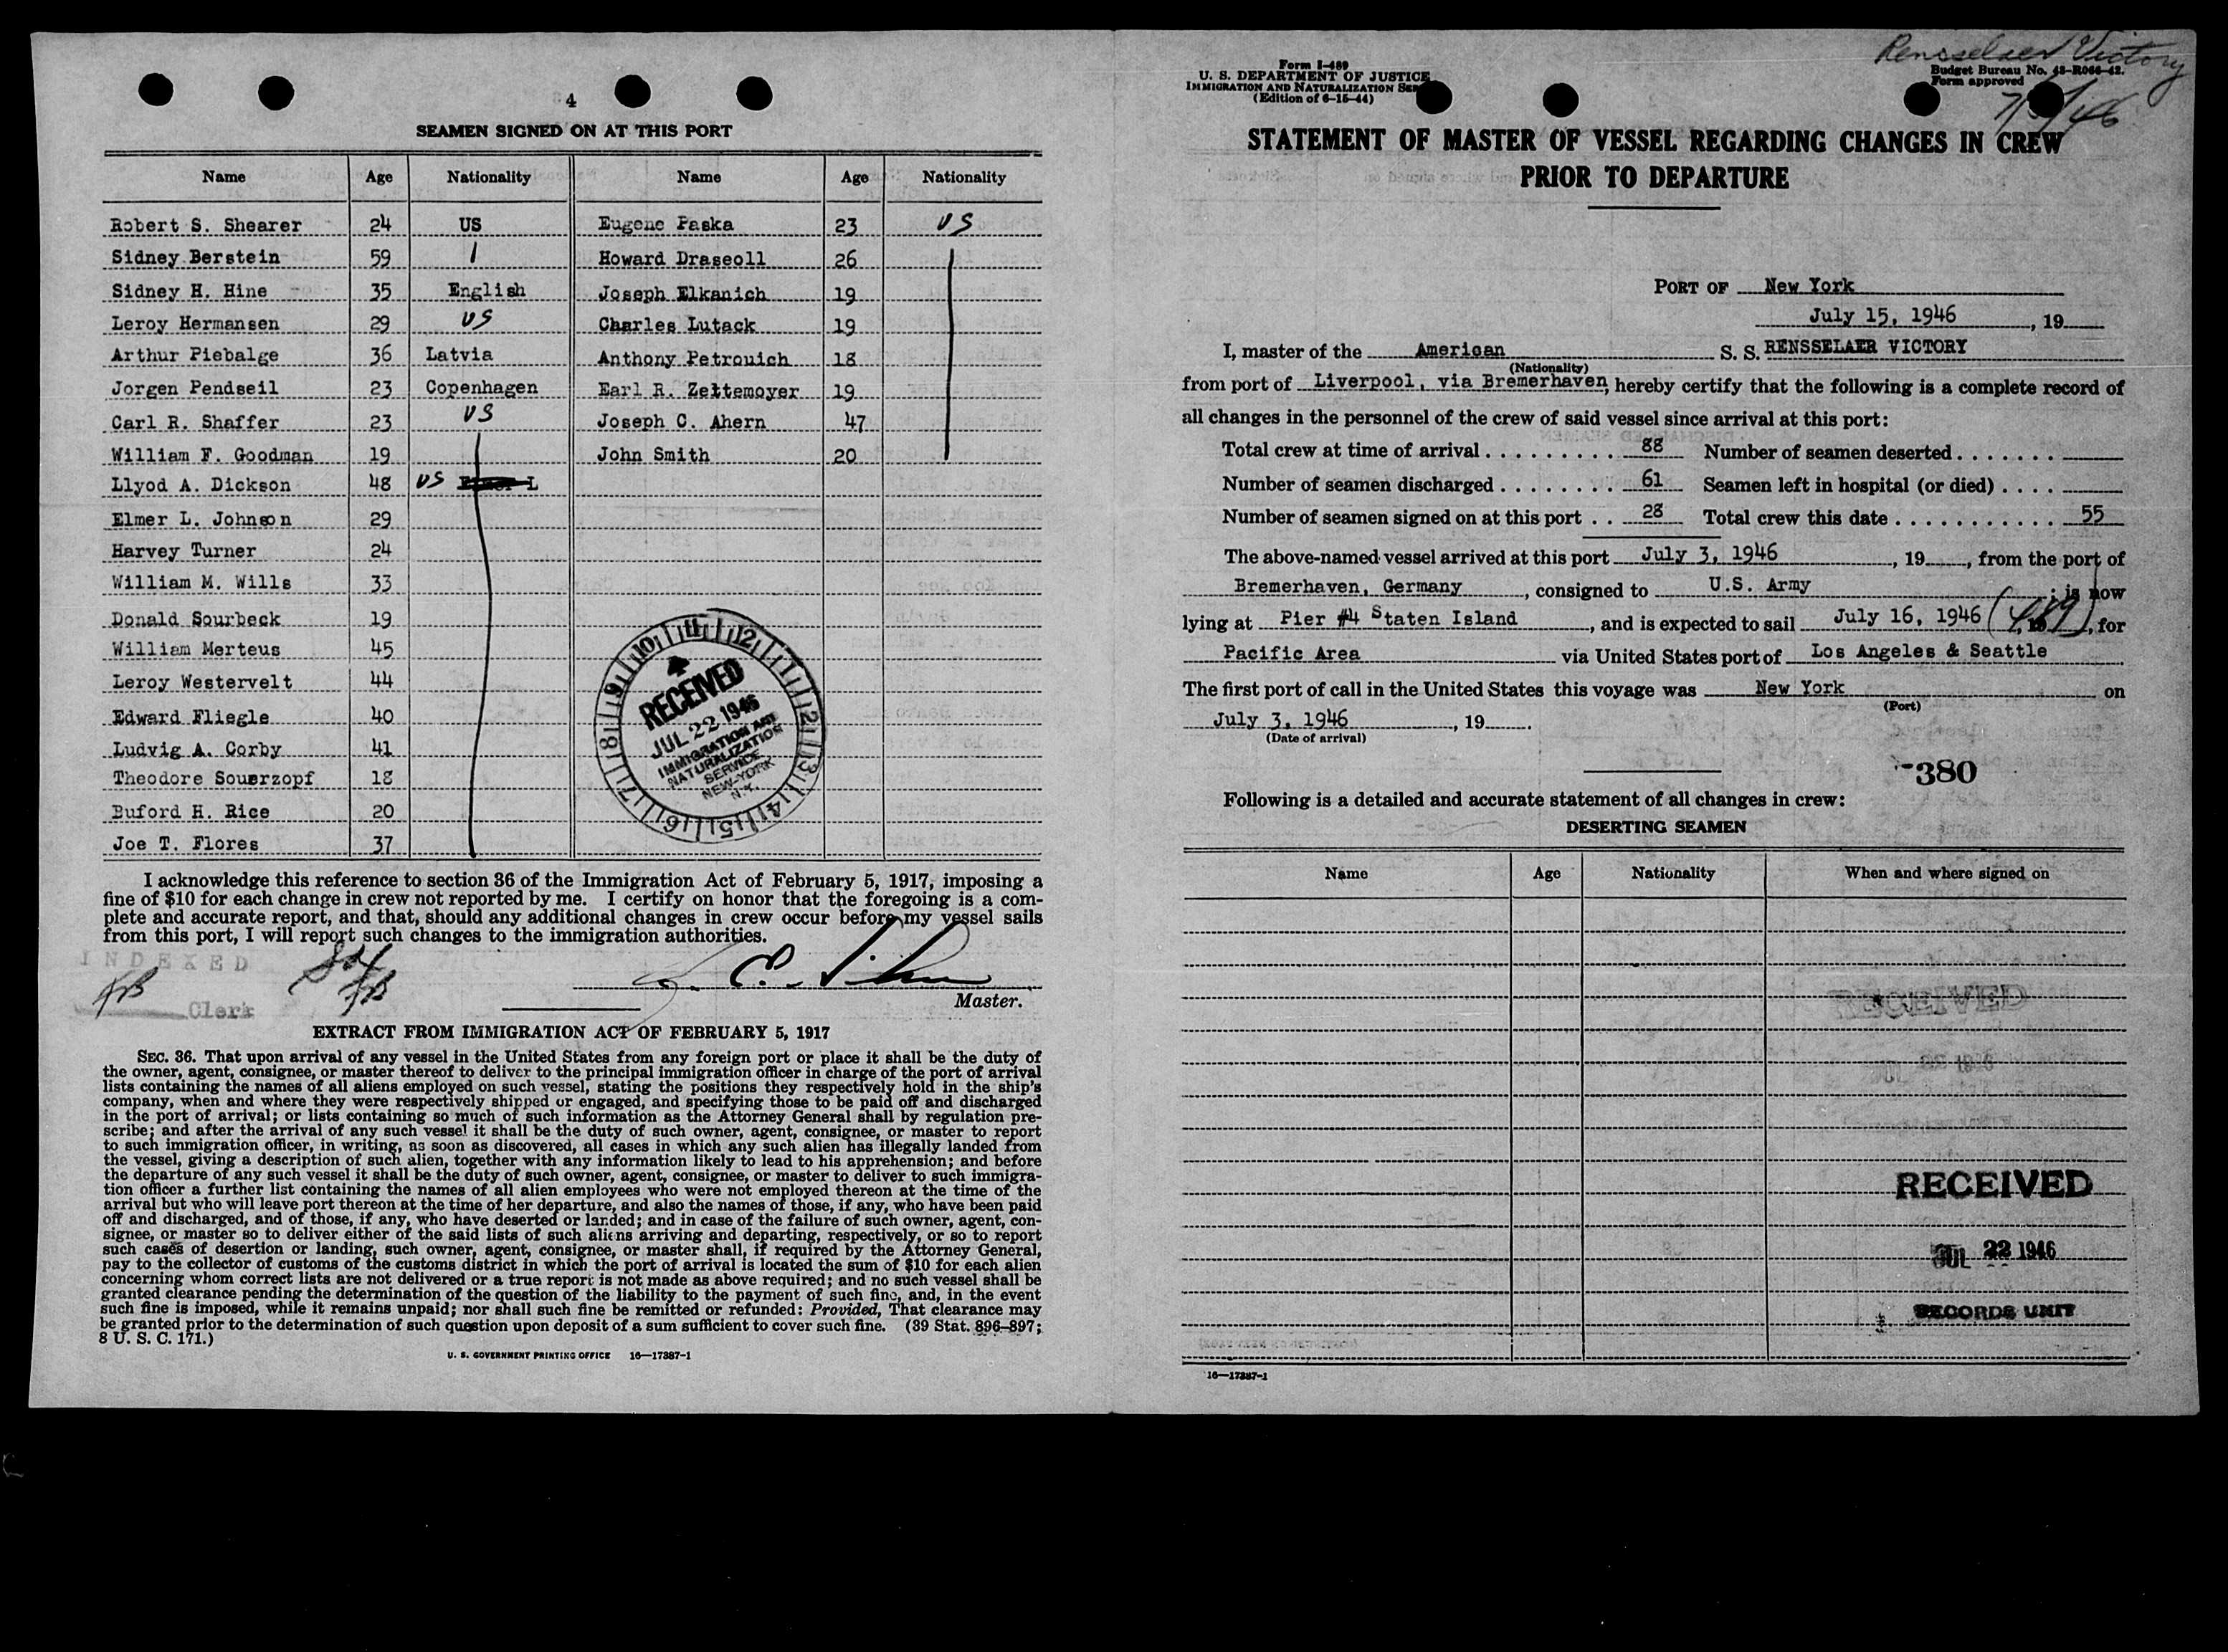 4
SEAMEN SIGNED ON AT THIS PORT
Name Age Nationality Name Age Nationality
Robert S. Shearer 24 US Eugene Paska 23 US
Sidney Berstein 59 Howard Draseoll 26
Sidney H. Hine 35 English Joseph Elkanich 19
Leroy Hermansen 29 US Charles Lutack 19
Arthur Piebalge 36 Latvia Anthony Petrouich 18
Jorgen Pendseil 23 Copenhagen Earl R. Zettemoyer 19
Carl R. Shaffer 23 US Joseph C. Ahern 47
William F. Goodman 19 John Smith 20
Llyod A. Dickson 48 US
Elmer L. Johnson 29
Harvey Turner 24
William M. Wills 33
Donald Sourbeck 19
William Merteus 45
Leroy Westervelt 44
Edward Fliegle 40
Ludvig A. Corby 41
Theodore Souerzopf 18
Buford H. Rice 20
Joe T. Flores 37
RECEIVED
JUL 22 1946
IMMIGRATION AND
NATURALIZATION
SERVICE
NEW-YORK
N.Y.
I acknowledge this reference to section 36 of the Immigration Act of February 5, 1917, imposing a
fine of $10 for each change in crew not reported by me. I certify on honor that the foregoing is a com-
plete and accurate report, and that, should any additional changes in crew occur before my vessel sails
from this port, I will report such changes to the immigration authorities.
INDEXED
Clerk
Master.
EXTRACT FROM IMMIGRATION ACT OF FEBRUARY 5, 1917
SEC. 36. That upon arrival of any vessel in the United States from any foreign port or place it shall be the duty of
the owner, agent, consignee, or master thereof to deliver to the principal immigration officer in charge of the port of arrival
lists containing the names of all aliens employed on such vessel, stating the positions they respectively hold in the ship's
company, when and where they were respectively shipped or engaged, and specifying those to be paid off and discharged
in the port of arrival; or lists containing so much of such information as the Attorney General shall by regulation pre-
scribe; and after the arrival of any such vessel it shall be the duty of such owner, agent, consignee, or master to report
to such immigration officer, in writing, as soon as discovered, all cases in which any such alien has illegally landed from
the vessel, giving a description of such alien, together with any information likely to lead to his apprehension; and before
the departure of any such vessel it shall be the duty of such owner, agent, consignee, or master to deliver to such immigra-
tion officer a further list containing the names of all alien employees who were not employed thereon at the time of the
arrival but who will leave port thereon at the time of her departure, and also the names of those, if any, who have been paid
off and discharged, and of those, if any, who have deserted or landed; and in case of the failure of such owner, agent, con-
signee, or master so to deliver either of the said lists of such aliens arriving and departing, respectively, or so to report
such cases of desertion or landing, such owner, agent, consignee, or master shall, if required by the Attorney General,
pay to the collector of customs of the customs district in which the port of arrival is located the sum of $10 for each alien
concerning whom correct lists are not delivered or a true report is not made as above required; and no such vessel shall be
granted clearance pending the determination of the question of the liability to the payment of such fine, and, in the event
such fine is imposed, while it remains unpaid; nor shall such fine be remitted or refunded: Provided, That clearance may
be granted prior to the determination of such question upon deposit of a sum sufficient to cover such fine. (39 Stat. 896–897;
8 U. S. C. 171.)
U. S. GOVERNMENT PRINTING OFFICE 16—17387-1
Rensselaer Victory
Form I-489
U. S. DEPARTMENT OF JUSTICE
IMMIGRATION AND NATURALIZATION SER
(Edition of 6-15-44)
Budget Bureau No. 43-R066-42.
Form approved
STATEMENT OF MASTER OF VESSEL REGARDING CHANGES IN CREW
PRIOR TO DEPARTURE
PORT OF New York
July 15, 1946, 19
I, master of the American S. S. RENSSELAER VICTORY
(Nationality)
from port of Liverpool, via Bremerhaven, hereby certify that the following is a complete record of
all changes in the personnel of the crew of said vessel since arrival at this port:
Total crew at time of arrival . . . . . . . . . 88 Number of seamen deserted . . . . . . .
Number of seamen discharged . . . . . . . . 61 Seamen left in hospital (or died) . . . .
Number of seamen signed on at this port . . 28 Total crew this date . . . . . . . . . . . 55
The above-named vessel arrived at this port July 3, 1946, 19, from the port of
Bremerhaven, Germany, consigned to U.S. Army; is now
lying at Pier #4 Staten Island, and is expected to sail July 16, 1946 (489), for
Pacific Area via United States port of Los Angeles & Seattle
The first port of call in the United States this voyage was New York on
(Port)
July 3, 1946, 19.
(Date of arrival)
-380
Following is a detailed and accurate statement of all changes in crew:
DESERTING SEAMEN
Name Age Nationality When and where signed on
RECEIVED
RECEIVED
JUL 22 1946
RECORDS UNIT
16—17387-1